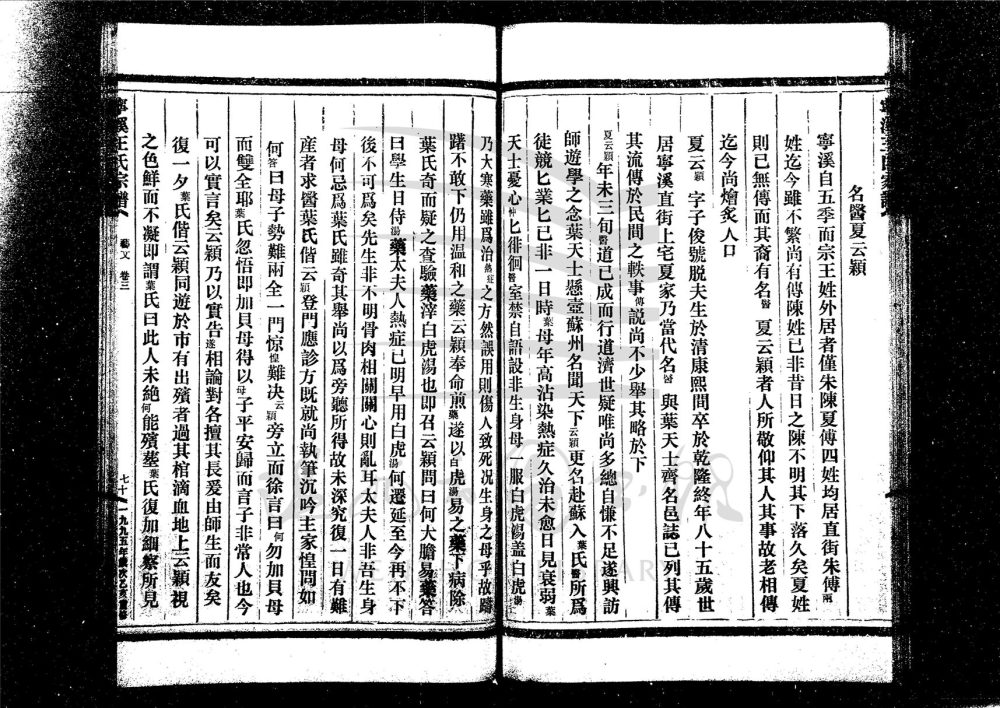 名醫夏云穎
寧溪自五季而宗王姓外居者僅朱陳夏傅四姓均居直街朱傅兩
姓迄今雖不繁尚有傳陳姓已非昔日之陳不明其下落久矣夏姓
則已無傳而其裔有名醫夏云穎者人所敬仰其人其事故老相傳
迄今尚燴炙人口
夏云穎字子俊號脱夫生於清康熙間卒於乾隆終年八十五歲世
居寧溪直街上宅夏家乃當代名醫與葉天士齊名邑誌已列其傳
其流傳於民間之軼事傳説尚不少舉其略於下
夏云穎年未三旬醫道已成而行道濟世疑唯尚多總自慊不足遂興訪
師遊學之念葉天士懸壺蘇州名聞天下云穎更名赴蘇入葉氏醫所爲
徒競匕業匕已非一日時葉母年高沾染熱症久治未愈日見衰弱葉
天士憂心忡匕徘徊醫室禁自語設非生身母一服白虎湯盖白虎湯
乃大寒藥雖爲治熱症之方然誤用則傷人致死况生身之母乎故躊
躇不敢下仍用温和之藥云穎奉命煎藥遂以白虎湯易之藥下病除
葉氏奇而疑之查驗藥滓白虎湯也即召云穎問曰何大膽易藥答
曰學生日侍湯藥太夫人熱症已明早用白虎湯何遷延至今再不下
後不可爲矣先生非不明骨肉相關關心則亂耳太夫人非吾生身
母何忌爲葉氏雖奇其舉尚以爲旁聽所得故未深究復一日有難
産者求醫葉氏偕云穎登門應診方既就尚執筆沉吟主家惶問如
何答曰母子勢難兩全一門惊惶難决云穎旁立而徐言曰何勿加貝母
而雙全耶葉氏忽悟即加貝母得以母子平安歸而言子非常人也今
可以實言矣云穎乃以實告遂相論對各擅其長爰由師生而友矣
復一夕葉氏偕云穎同遊於市有出殯者過其棺滴血地上云穎視
之色鮮而不凝即謂葉氏曰此人未絶何能殯塟葉氏復加細察所見
寧溪王氏宗譜
藝文 卷三
七十一
一九九五年歲次乙亥重修